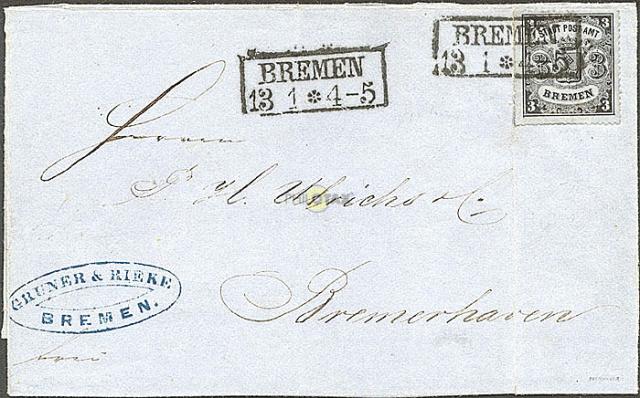 BREMEN
13 1 ✲ 4-5
BREMEN
13 1 ✲ 4-5
3 3
STADT POST AMT
3
BREMEN
3 3
Herren
H. Ulrichs & C.
Bremerhaven
GRUNER & RIEKE
BREMEN.
frei